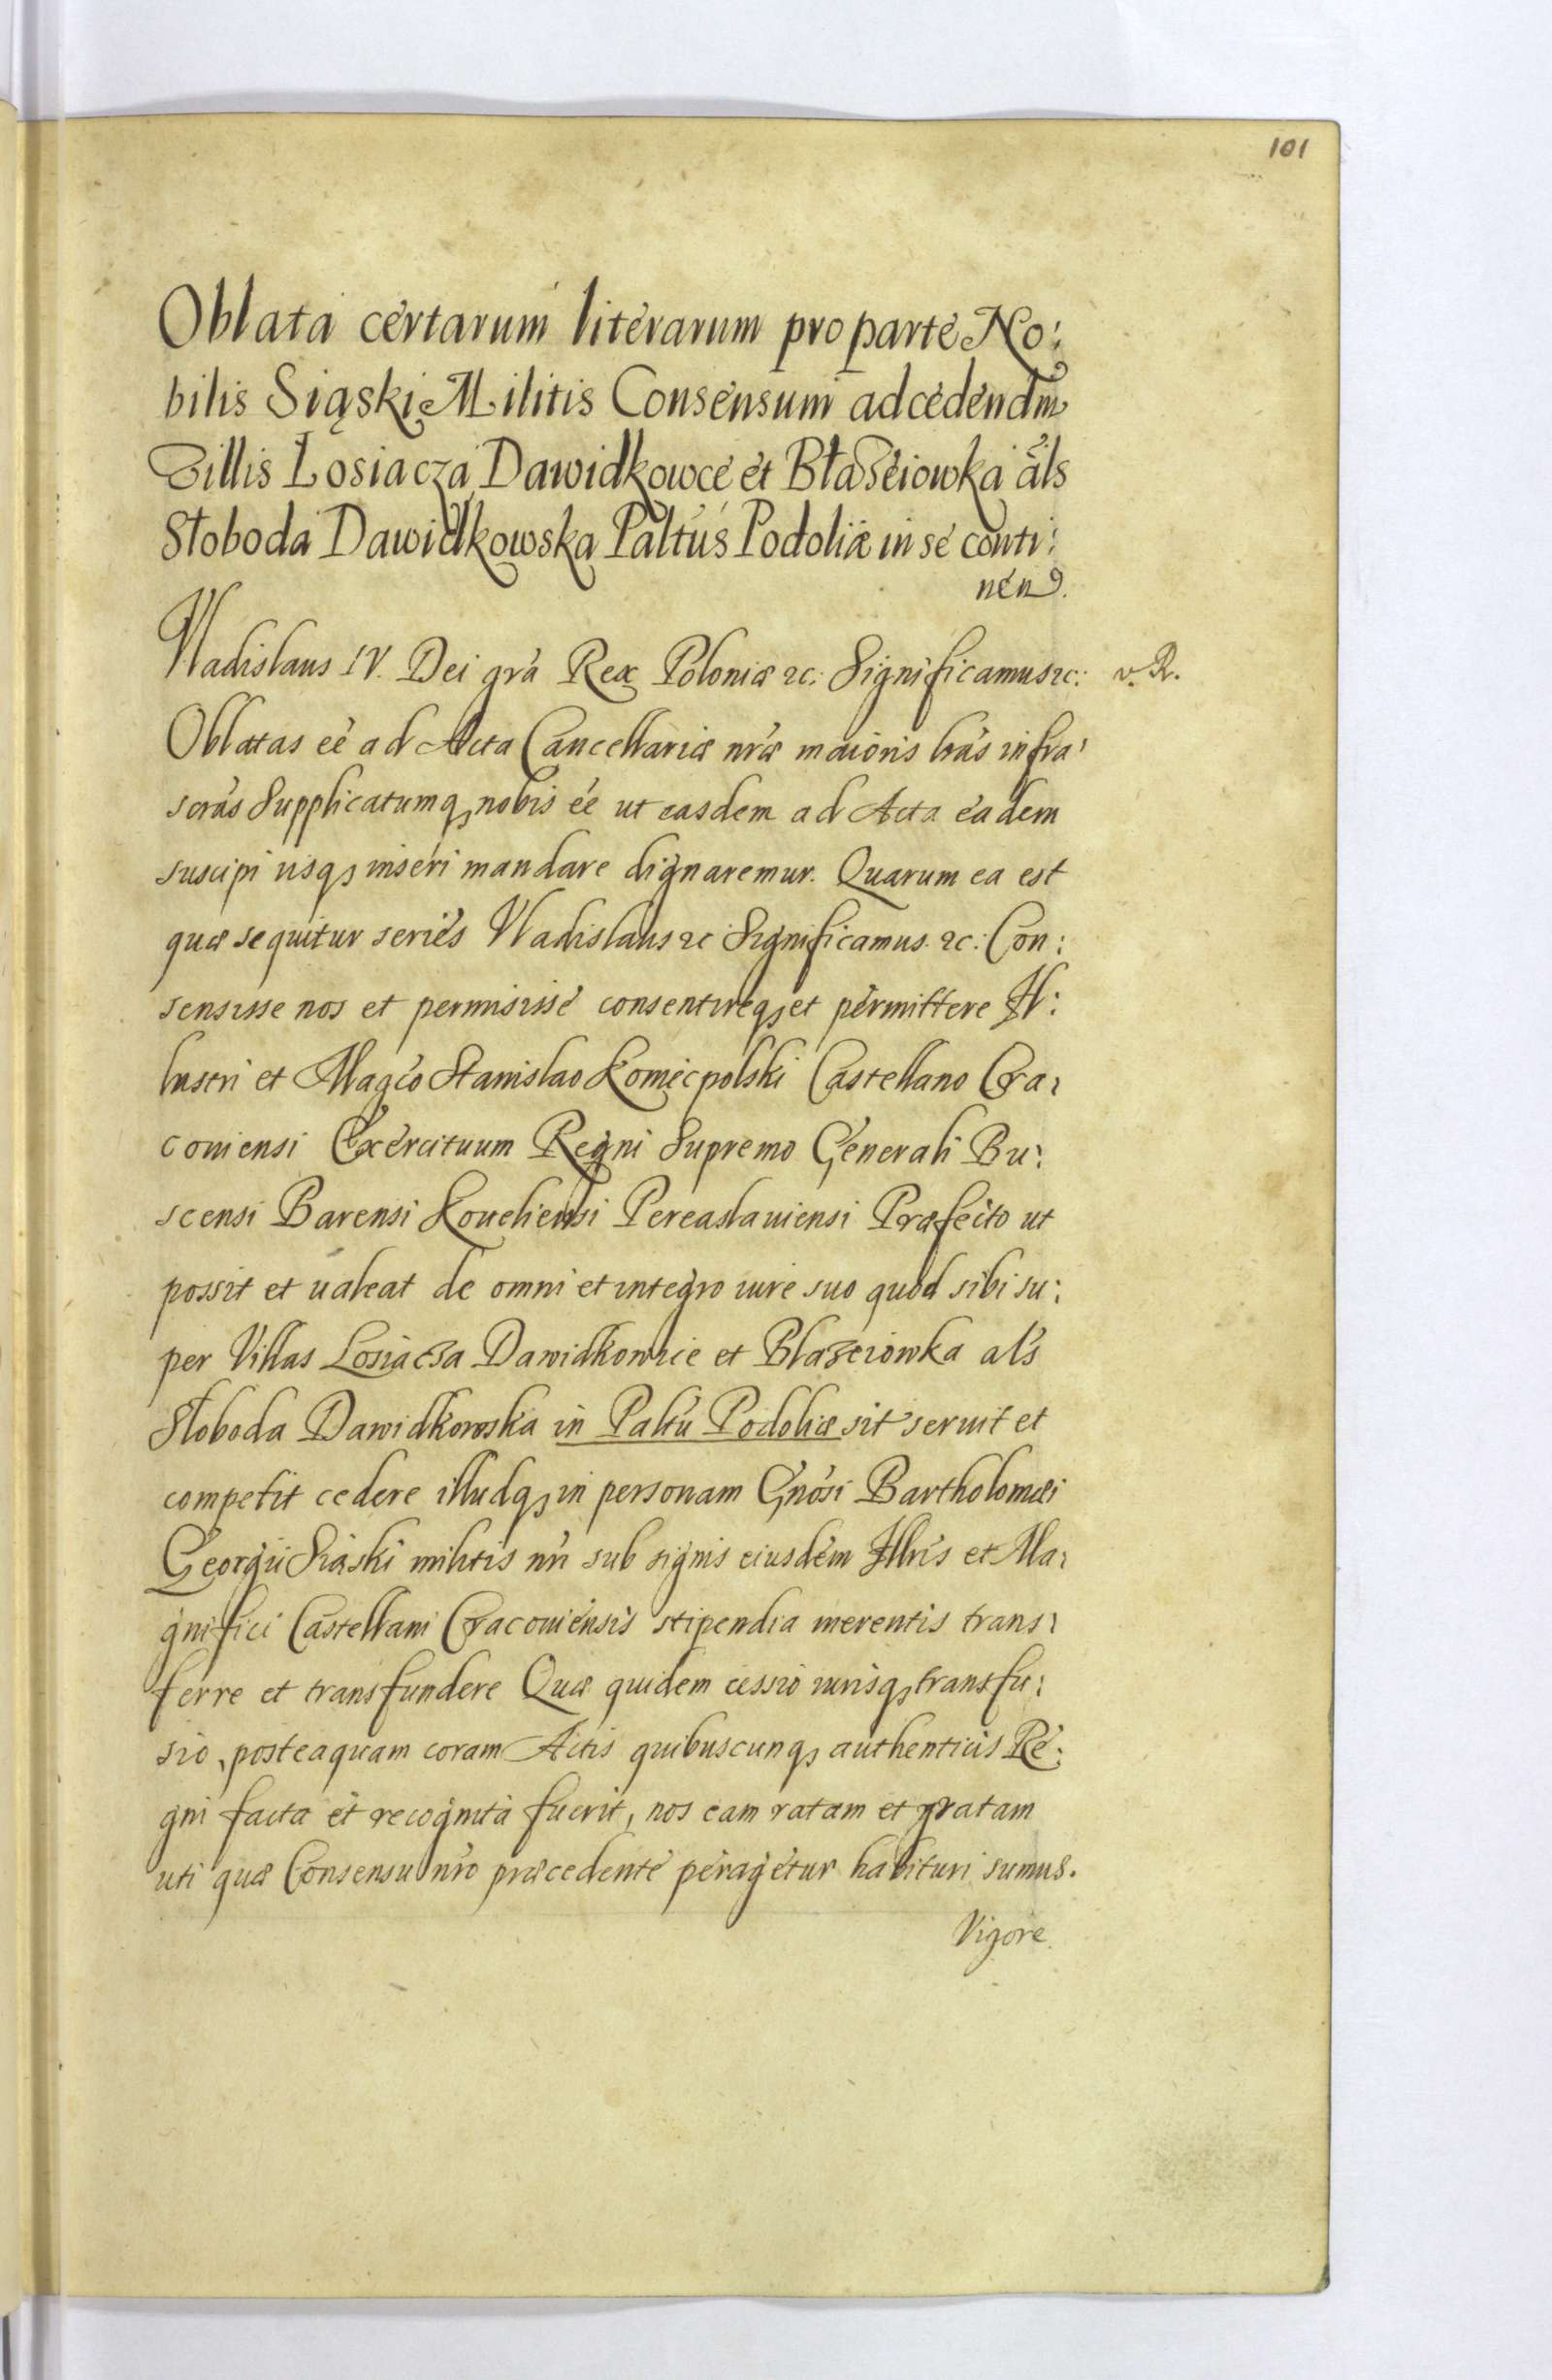 101
Oblata certarum literarum pro parte No:
bilis Siąski Militis Consensum ad cedendm
Villis Losiacza Dawidkowce et Błażeiowka als
Słoboda Dawidkowska Paltus Podoliæ in se conti:
nen.
Vladislaus IV. Dei gra Rex Poloniæ &c: Significamus &c: v. R.
Oblatas eé ad Acta Cancellariæ nræ maioris lras infra
scras Supplicatumq nobis eé ut easdem ad Acta eadem
suscipi iisq inseri mandare dignaremur. Quarum ea est
quæ sequitur series Vladislaus &c Significamus &c: Con:
sensisse nos et permisisse consentireq et permittere Il:
lustri et Magco Stanislao Koniecpolski Castellano Cra:
coviensi Exercituum Regni Supremo Generali Bu:
scensi Barensi Koueliensi Pereaslauiensi Præfecto ut
possit et ualeat de omni et integro iure suo quod sibi su:
per Villas Losiacza Dawidkowice et Blazeiowka als
Słoboda Dawidkowska in Paltu Podoliæ sit seruit et
competit cedere illudq in personam Gnosi Bartholomæi
Georgii Siąski militis nri sub signis eiusdem Illris et Ma:
gnifici Castellani Cracouiensis stipendia merentis trans:
ferre et transfundere Quæ quidem cessio iurisq transfu:
sio, posteaquam coram Actis quibuscunq authenticis Re:
gni facta et recognita fuerit, nos eam ratam et gratam
uti quæ Consensu nro præcedente peragetur habituri sumus.
Vigore